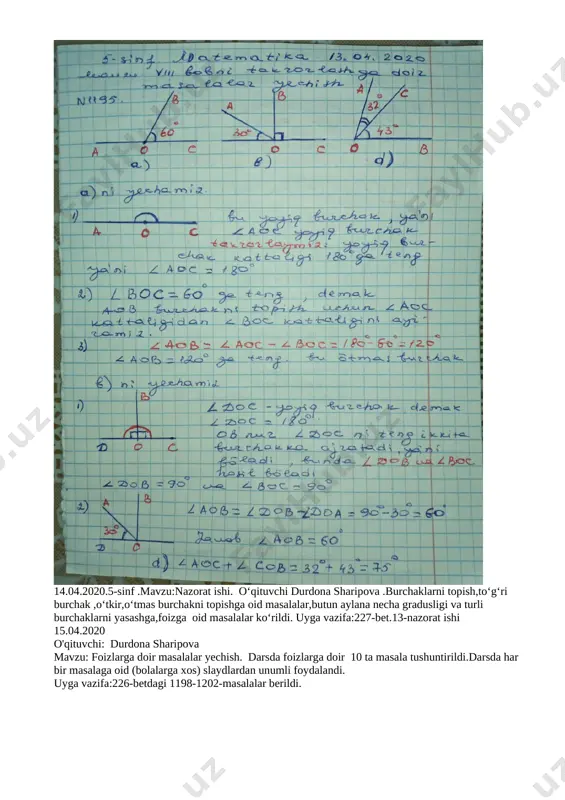 5-sinf Matematika 13.04.2020
VIII bobni takrorlashga doir
masalalar yechish
N1195.
B
60°
A O C
a)
A B
30°
O C
b)
A C
32°
43°
O B
d)
a) ni yechamiz
1)
A O C
bu yoyiq burchak, ya'ni
∠AOC yoyiq burchak
takrorlaymiz: yoyiq bur-
chak kattaligi 180° ga teng
ya'ni ∠AOC = 180°
2) ∠BOC = 60° ga teng, demak
AOB burchakni topish uchun ∠AOC
kattaligidan ∠BOC kattaligini ayi-
ramiz.
3) ∠AOB = ∠AOC - ∠BOC = 180° - 60° = 120°
∠AOB = 120° ga teng. bu o'tmas burchak
b) ni yechamiz
1)
B
D O C
∠DOC - yoyiq burchak demak
∠DOC = 180°
OB nur ∠DOC ni teng ikkita
burchakka ajratadi, ya'ni
bo'ladi bunda ∠DOB va ∠BOC
hosil bo'ladi
∠DOB = 90° va ∠BOC = 90°
2)
A B
30°
D O
∠AOB = ∠DOB - ∠DOA = 90° - 30° = 60°
Javob ∠AOB = 60°
d) ∠AOC + ∠COB = 32° + 43° = 75°
14.04.2020.5-sinf .Mavzu:Nazorat ishi. O‘qituvchi Durdona Sharipova .Burchaklarni topish,to‘g‘ri
burchak ,o‘tkir,o‘tmas burchakni topishga oid masalalar,butun aylana necha gradusligi va turli
burchaklarni yasashga,foizga oid masalalar ko‘rildi. Uyga vazifa:227-bet.13-nazorat ishi
15.04.2020
O'qituvchi: Durdona Sharipova
Mavzu: Foizlarga doir masalalar yechish. Darsda foizlarga doir 10 ta masala tushuntirildi.Darsda har
bir masalaga oid (bolalarga xos) slaydlardan unumli foydalandi.
Uyga vazifa:226-betdagi 1198-1202-masalalar berildi.
FaylHub.uz
FaylHub.uz
FaylHub.uz
uz
uz